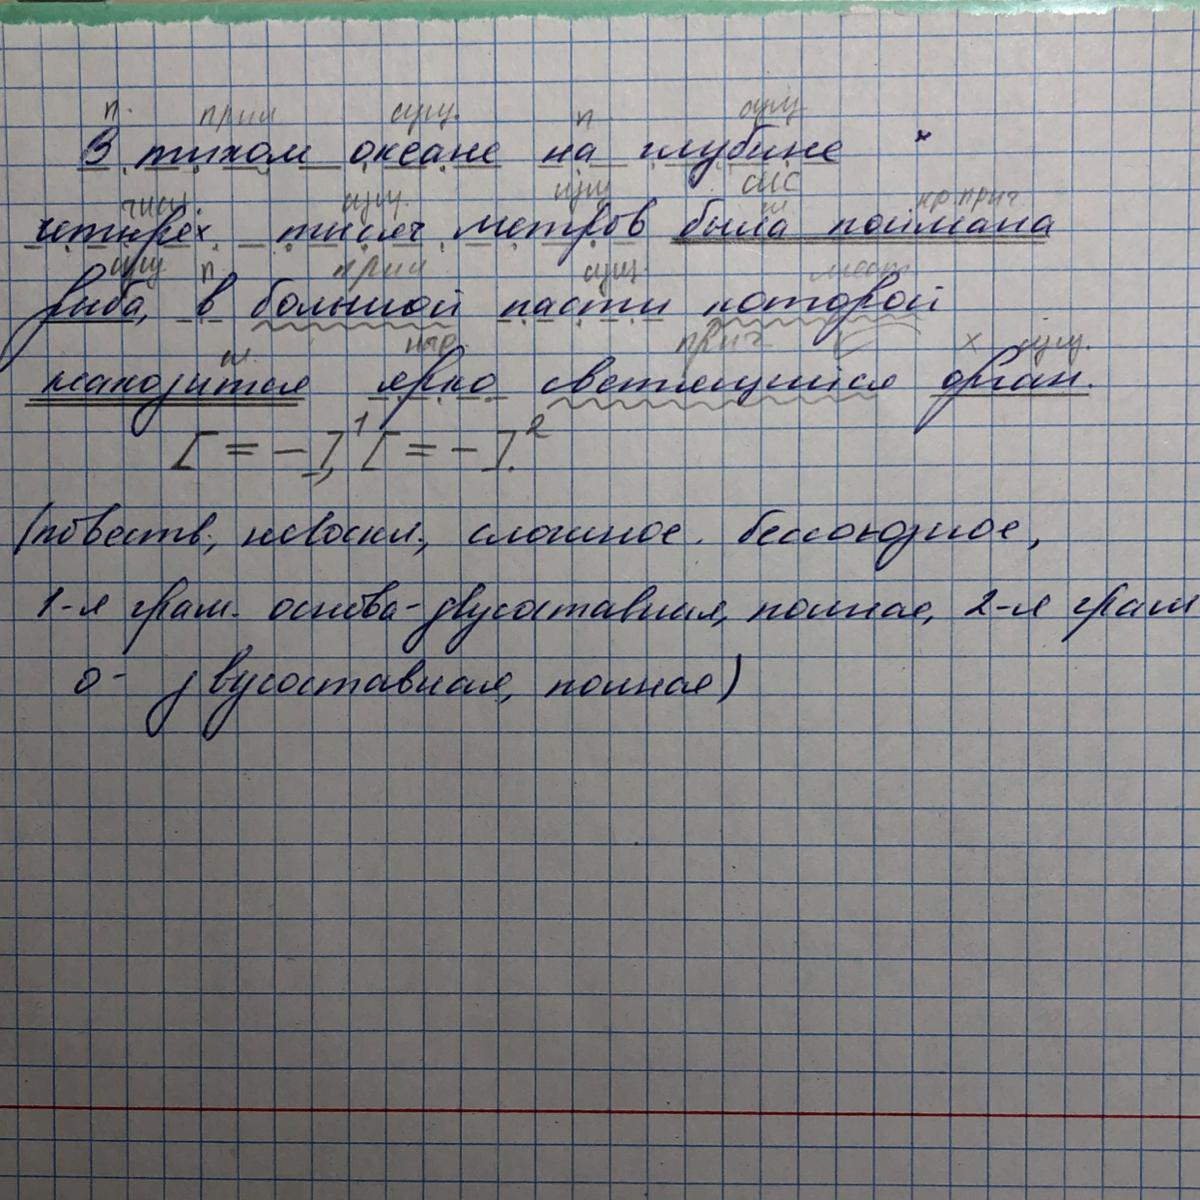 п. прил сущ. п сущ
В тихом океане на глубине
числ. сущ. сущ СИС кр.прич
четырёх тысяч метров была поймана
сущ п прил сущ. мест
рыба, в большой пасти которой
гл. нар. прич х сущ.
находится ярко светящийся орган.
[= –],¹ [= –].²
(повеств., невоскл., сложное. бессоюзное,
1-я грам. основа-двусоставная, полная, 2-я грам
о- двусоставная, полная)